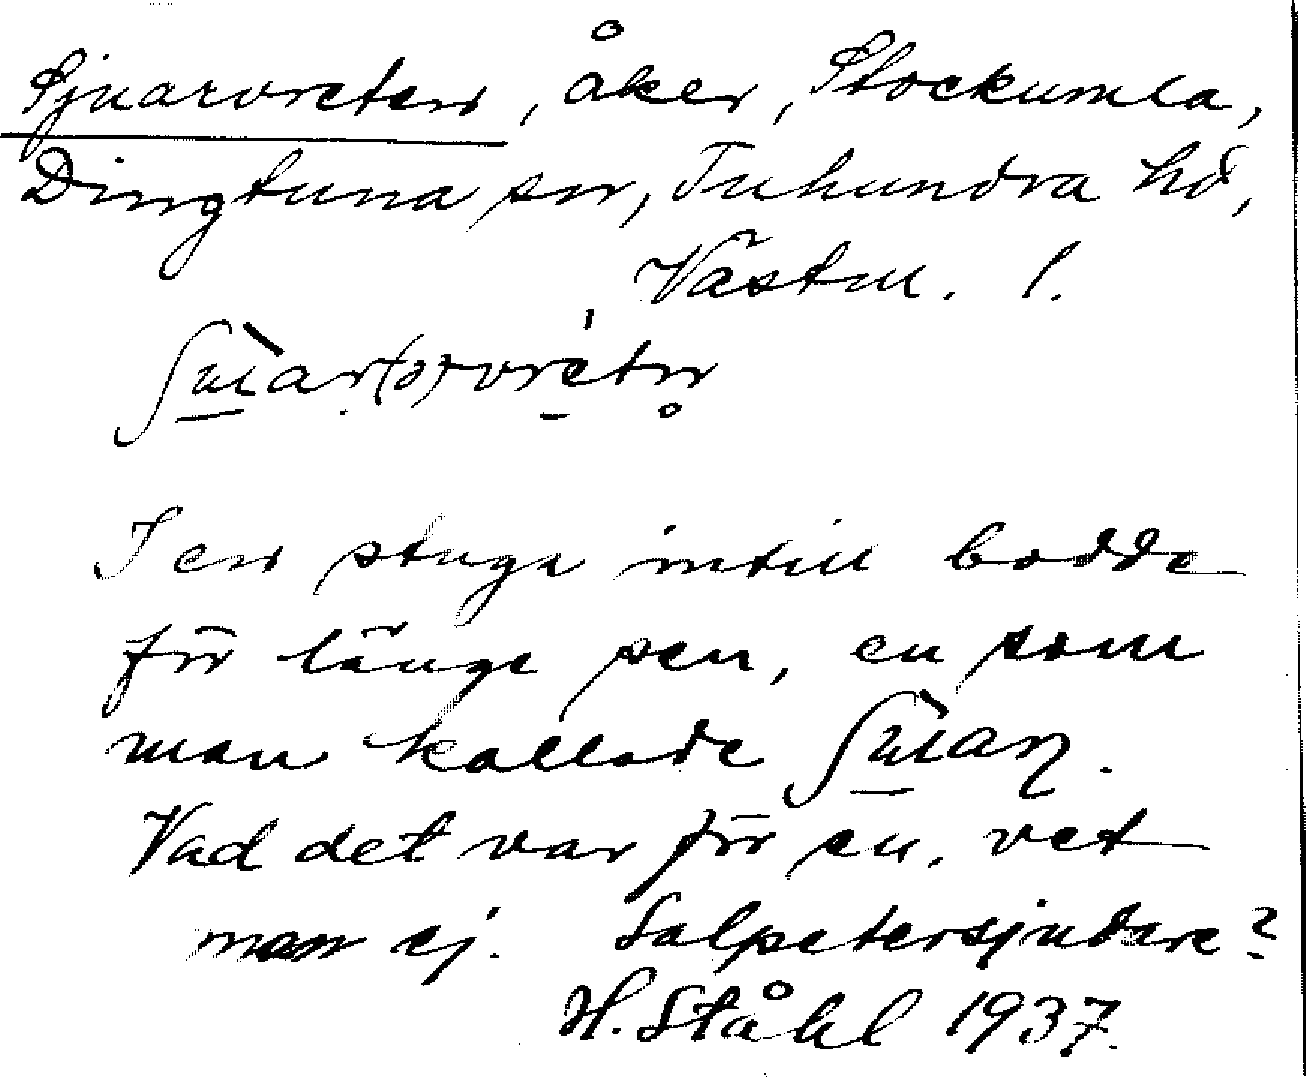 Sjuarvreten, åker, Stockumla,
Dingtuna sn, Tuhundra hd,
Västm. l.
I en stuga intill bodde
för länge sen, en som
man kallade
Vad det var för en, vet
man ej. Salpetersjudare?
H. Ståhl 1937.